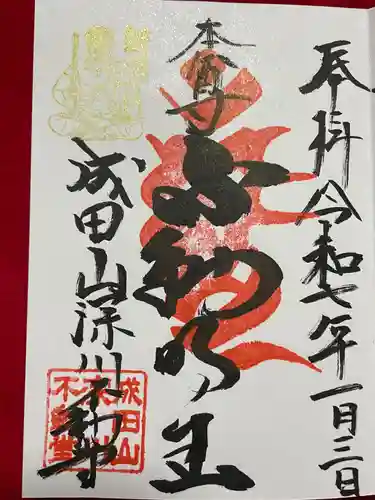 奉拝 令和七年一月三日
本尊 不動明王
成田山深川不動堂
成田山
不動堂